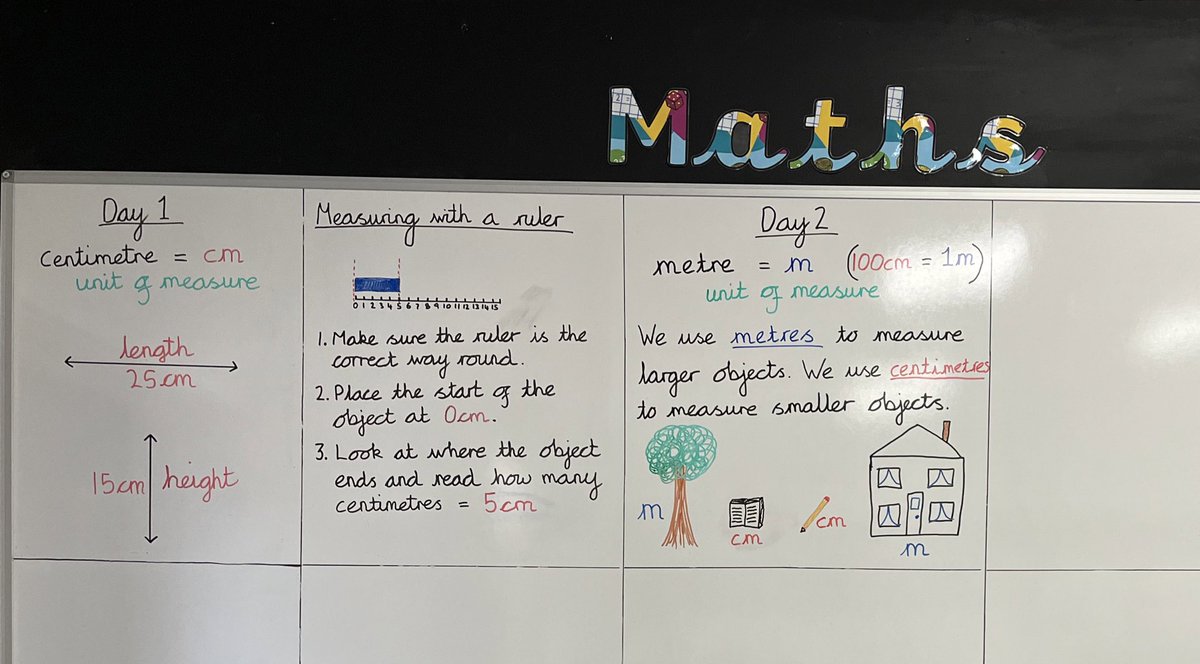 Maths
Day 1
centimetre = cm
unit of measure
length
25cm
15cm height
Measuring with a ruler
0 1 2 3 4 5 6 7 8 9 10 11 12 13 14 15
1. Make sure the ruler is the
correct way round.
2. Place the start of the
object at 0cm.
3. Look at where the object
ends and read how many
centimetres = 5cm
Day 2
metre = m (100cm = 1m)
unit of measure
We use metres to measure
larger objects. We use centimetres
to measure smaller objects.
m
cm
cm
m